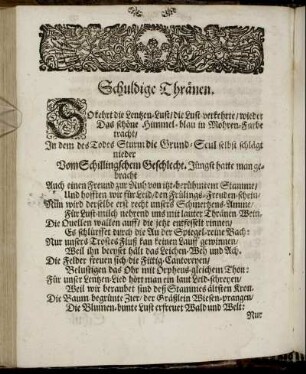 Schuldige Thränen.
SO kehrt die Lentzen-Lust/ die Lust verkehrte/ wieder
Das schöne Himmel-blau in Mohren-Farbe
tracht;
In dem des Todes Sturm die Grund-Seul selbst schlägt
nieder
Vom Schillingschem Geschlecht. Jüngst hatte man ge-
bracht
Auch einen Freund zur Ruh von itzt-berühmtem Stamme/
Und hofften wir für Leid/ den Frühlings-Freuden-schein
Nun wird derselbe erst recht unsers Schmertzens Amme/
Für Lust-milch nehrend uns mit lauter Thränen Wein.
Die Quellen wallen auff/ die jetzt entfesselt rinnen/
Es schlürffet durch die Au der Spiegel-reine Bach:
Nur unsers Trostes Fluß kan keinen Lauff gewinnen/
Weil ihn beeyset hält das Leichen-Weh und Ach.
Die Felder freuen sich/ die Fittig-Cantoreyen/
Belustigen das Ohr mit Orpheus-gleichem Thon:
Für unser Lentzen-Lied hört man ein laut Leid-schreyen/
Weil wir beraubet sind deß Stammes ältsten Kron.
Die Baum begrünte Zier/ der Graßlein Wiesen-prangen/
Die Blumen-bunte Lust erfreuet Wald und Welt:
Nur